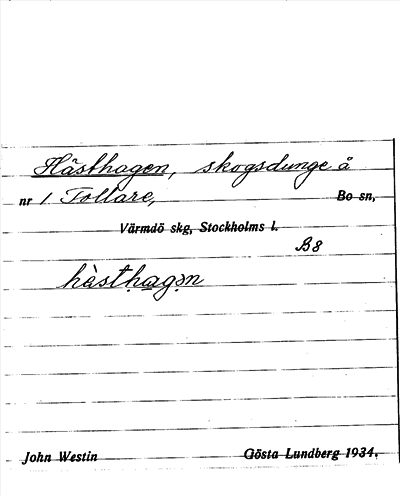 Hästhagen, skogsdunge å
nr 1 Tollare, Bo sn,
Värmdö skg, Stockholms l.
B8
hàsthagən
John Westin Gösta Lundberg 1934.